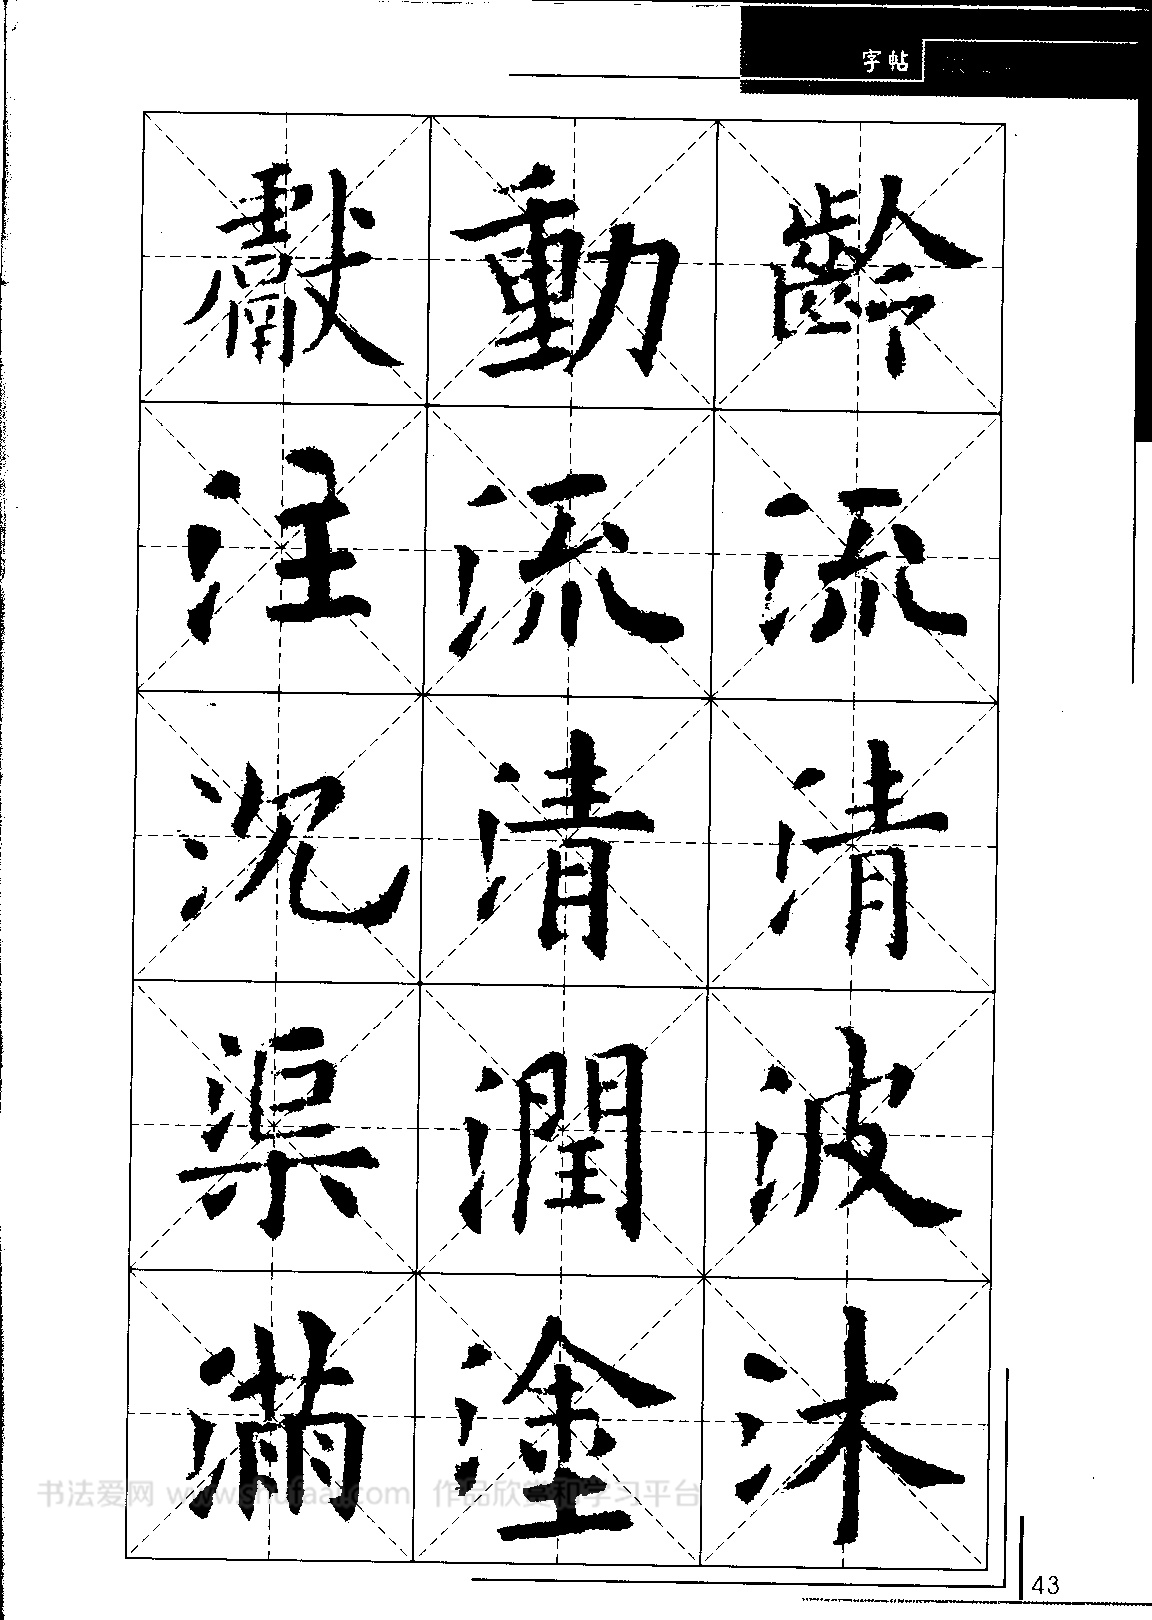 字帖
獻動齡
注流流
沉清清
渠潤波
滿塗沐
书法爱网 www.shufaai.com 作品欣赏和学习平台
43